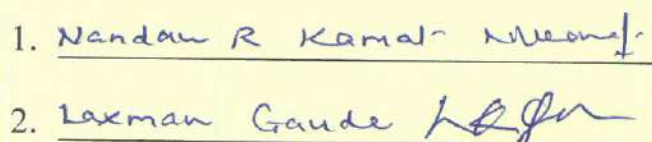 1. Nandan R Kamat
2. Laxman Gaude